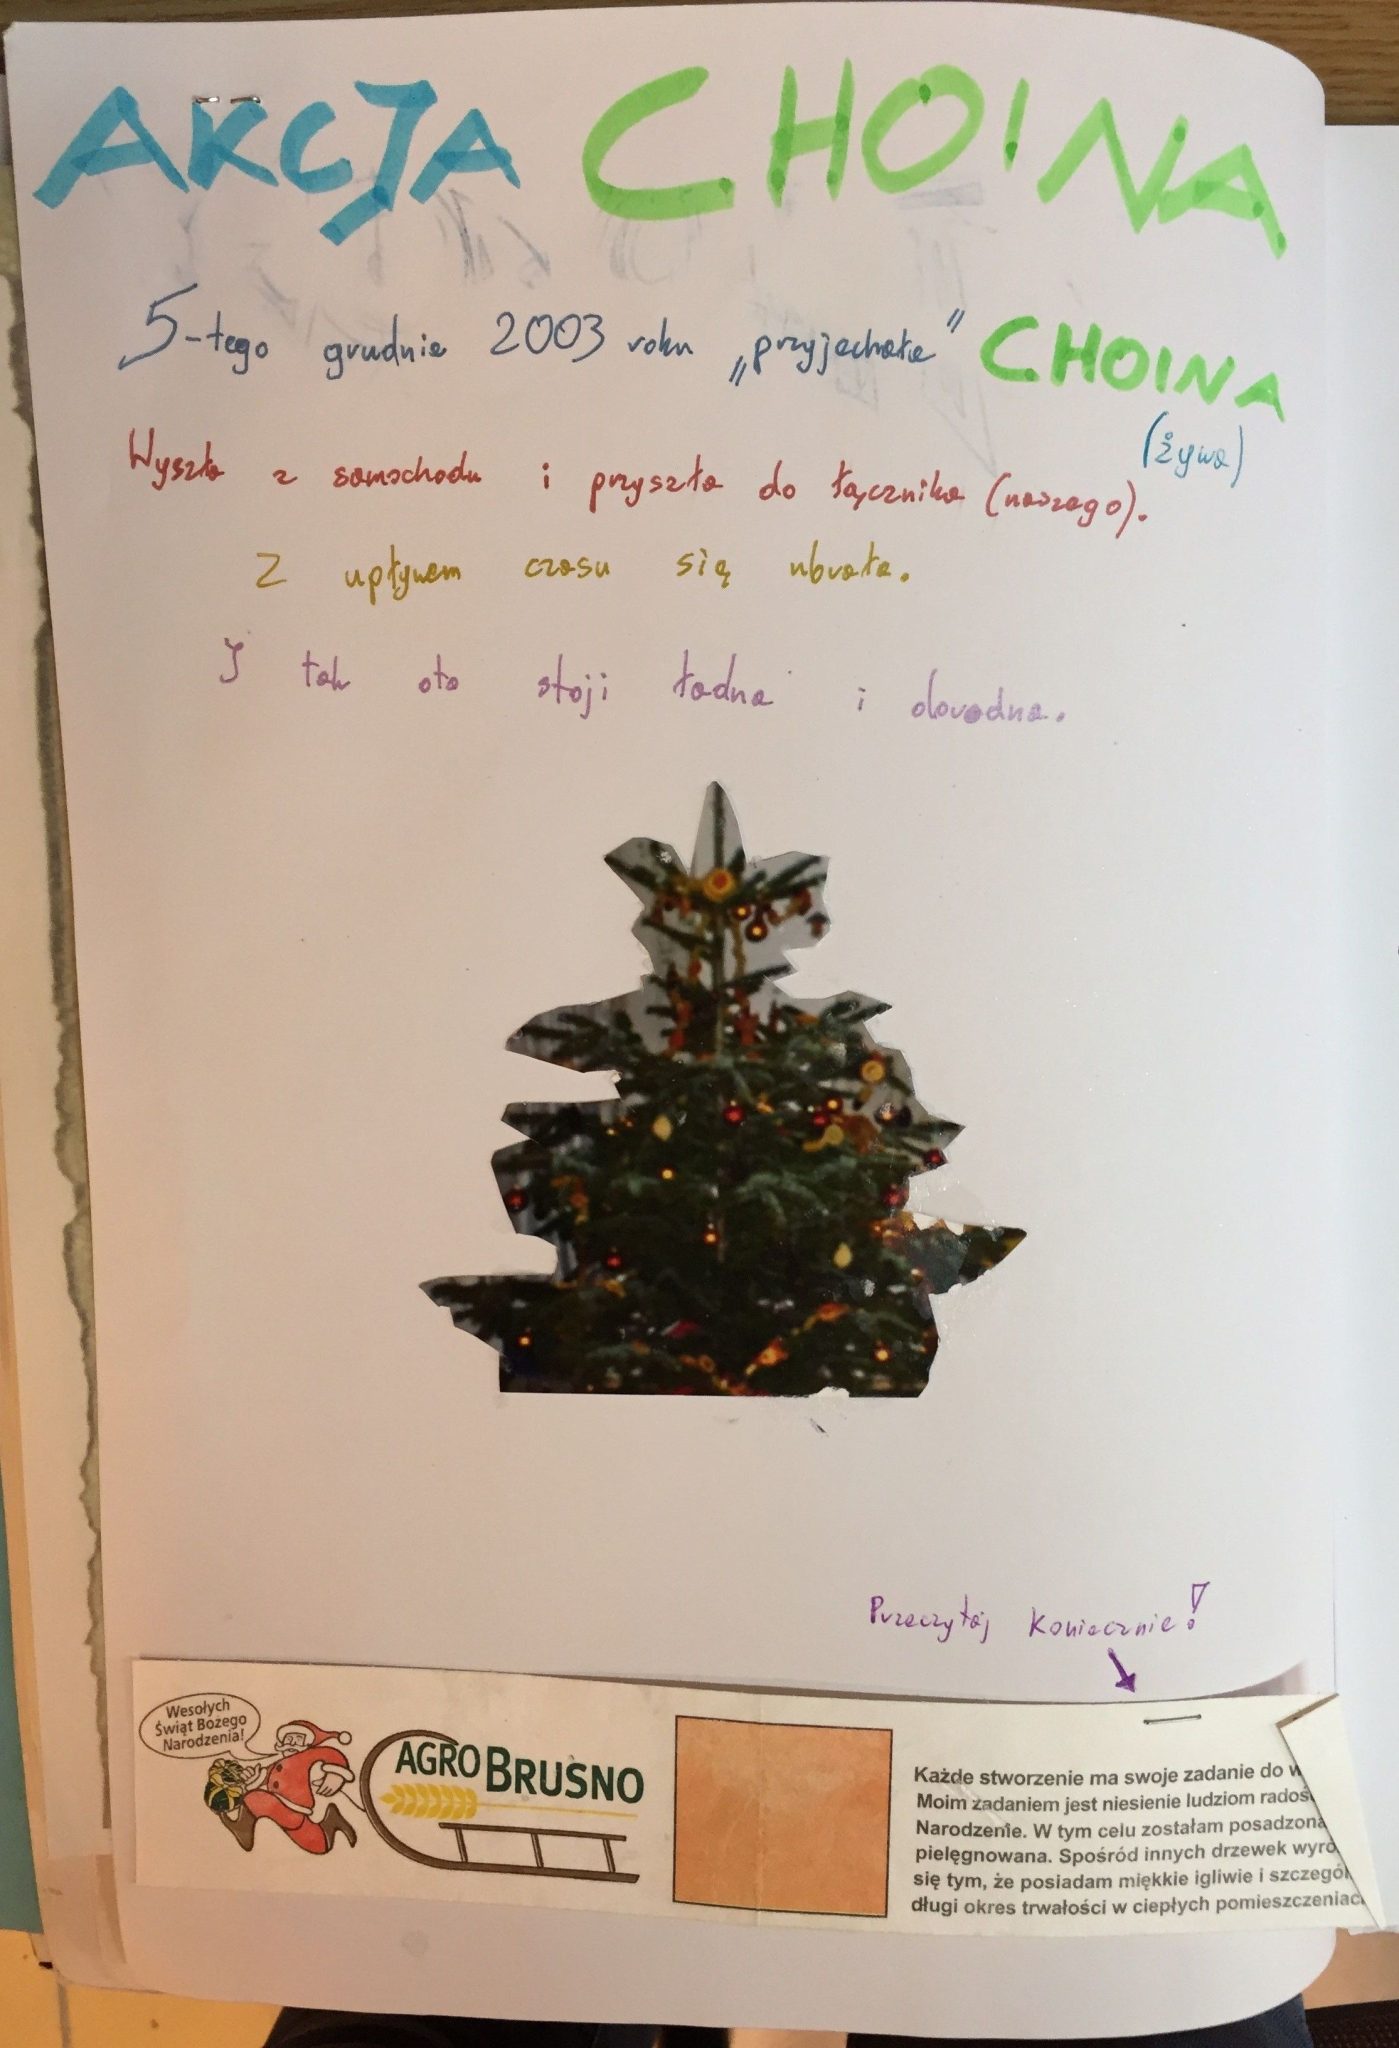 AKCJA CHOINA
5-tego grudnia 2003 roku „przyjechała" CHOINA
(żywa)
Wyszła z samochodu i przyszła do łącznika (naszego).
Z upływem czasu się ubrała.
I tak oto stoji ładna i dorodna.
Przeczytaj koniecznie!
Wesołych
Świąt Bożego
Narodzenia!
AGROBRUSNO
Każde stworzenie ma swoje zadanie do w
Moim zadaniem jest niesienie ludziom radoś
Narodzenie. W tym celu zostałam posadzona
pielęgnowana. Spośród innych drzewek wyró
się tym, że posiadam miękkie igliwie i szczegól
długi okres trwałości w ciepłych pomieszczeniac